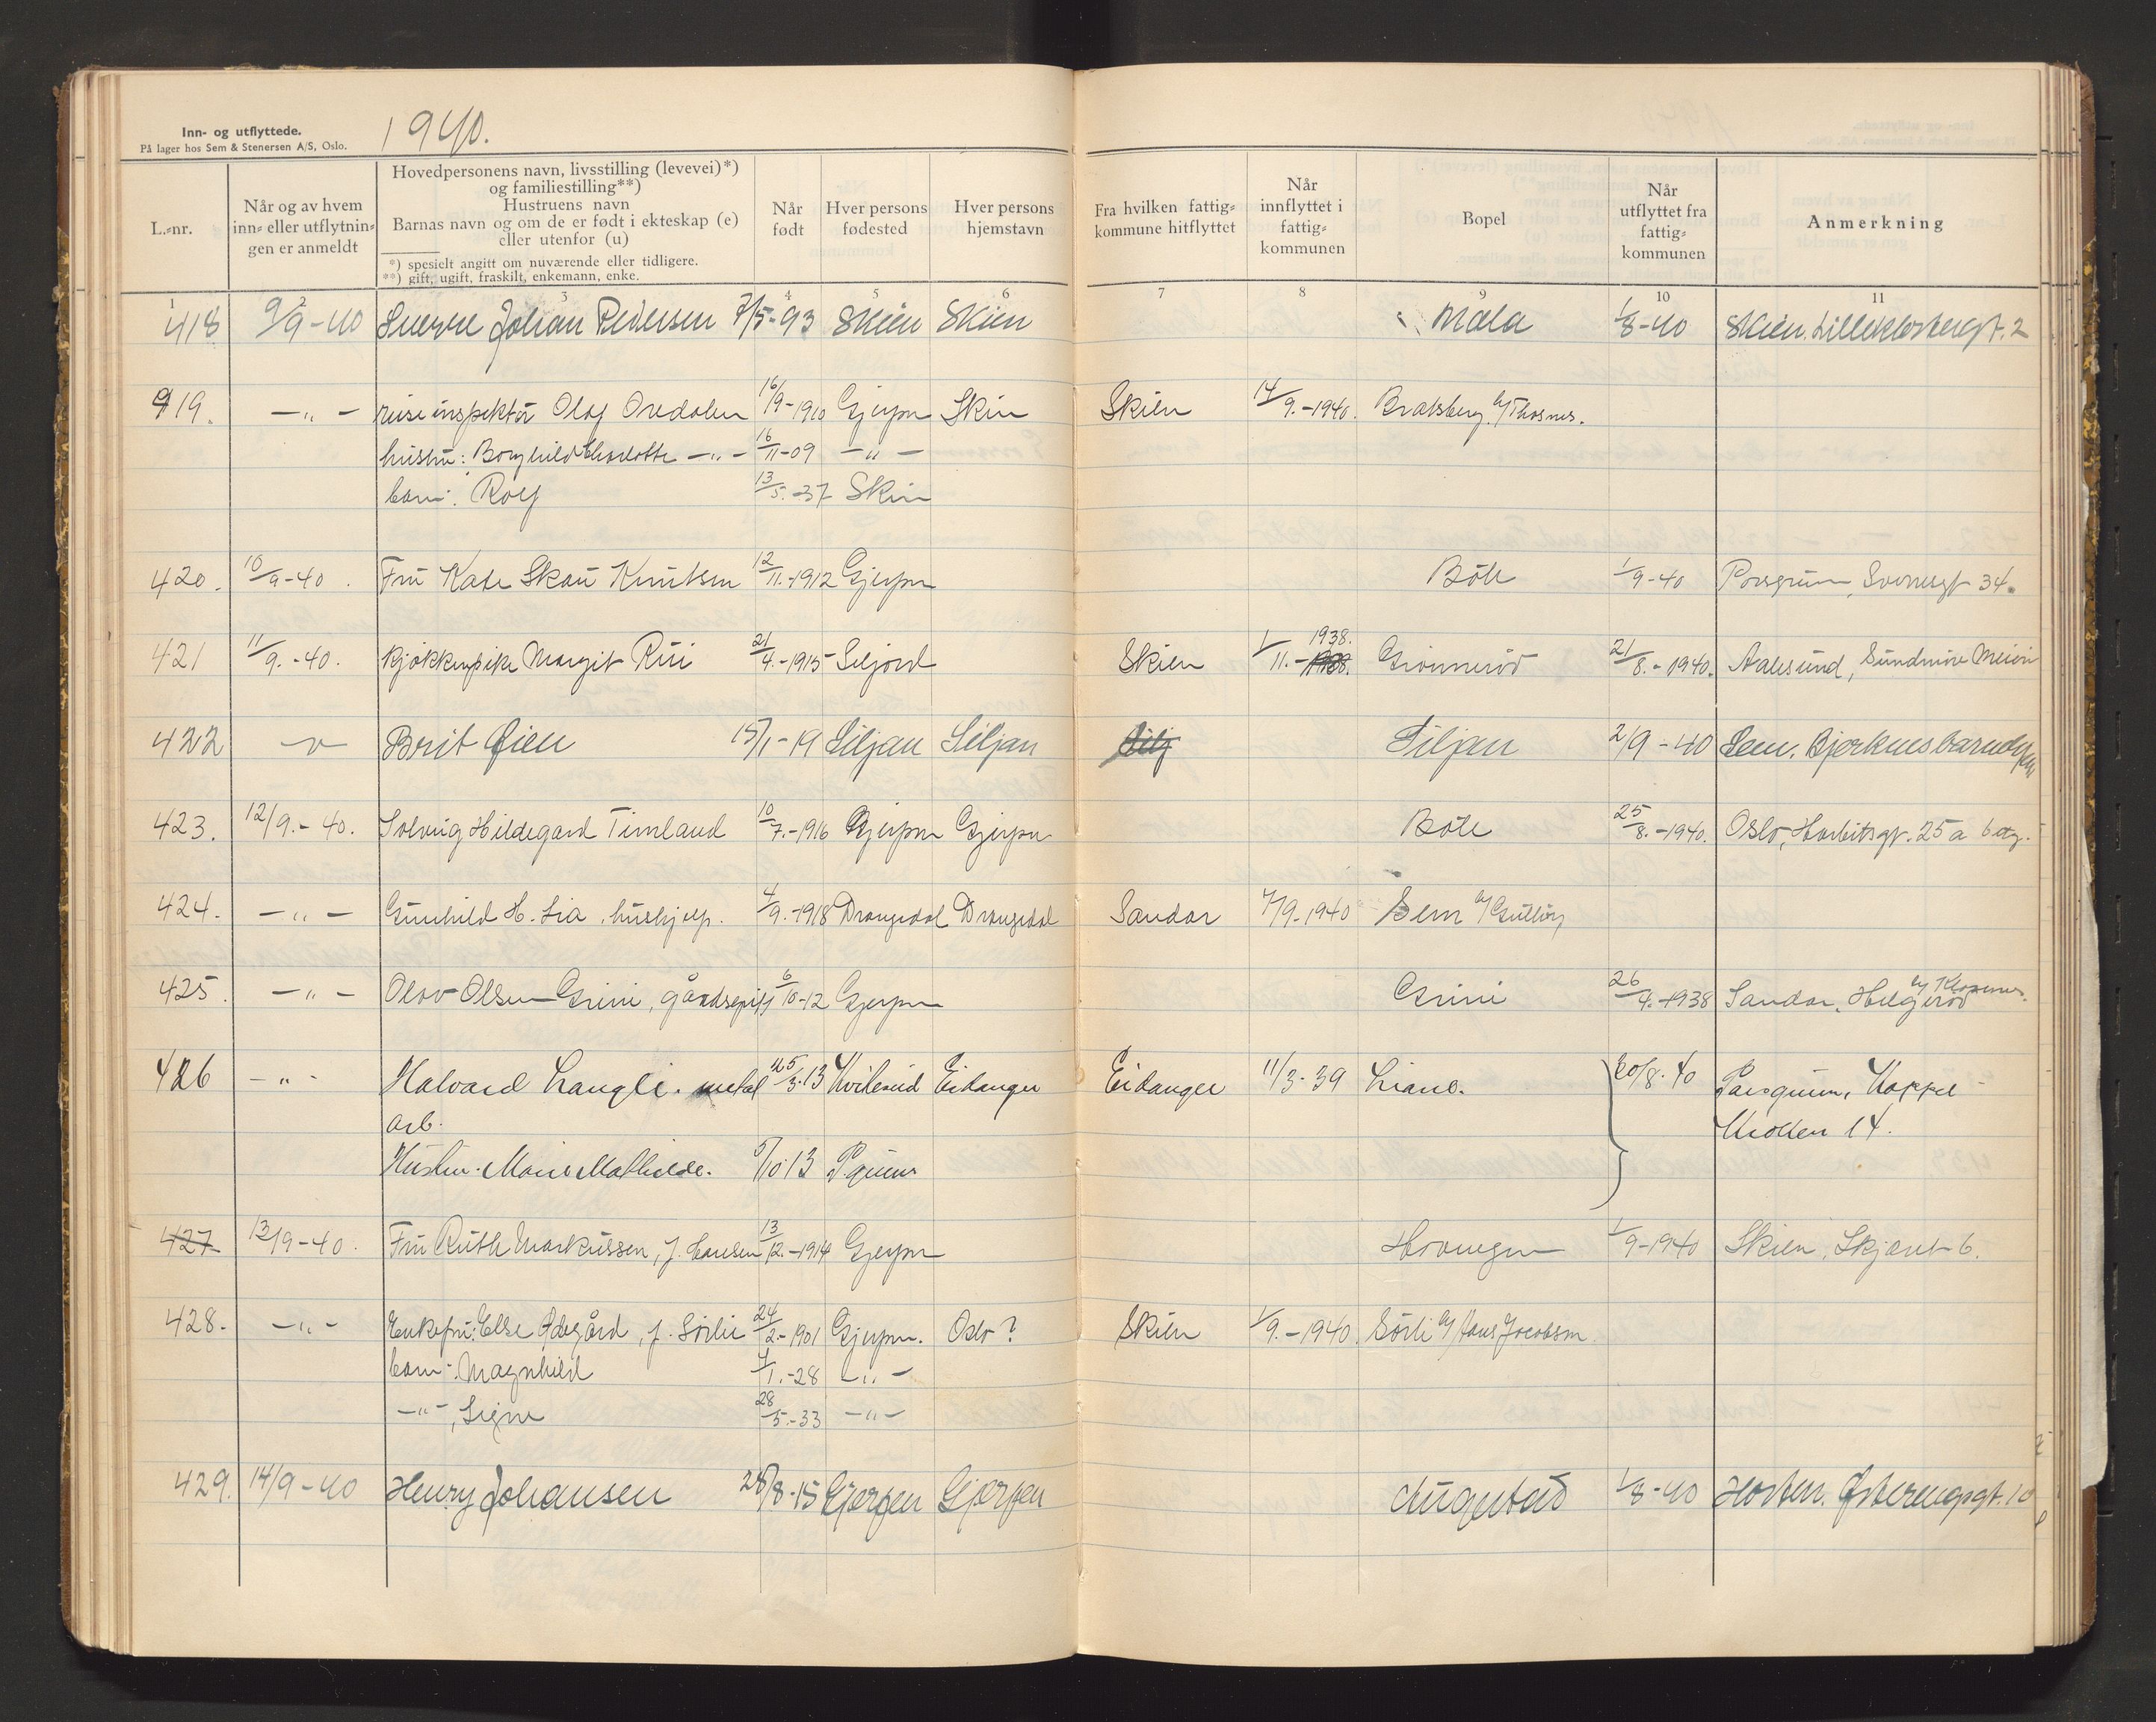 Inn- og utflyttede.
På lager hos Sem & Stenersen A/S, Oslo.
1940.
L.-nr.
Når og av hvem inn- eller utflytnin-gen er anmeldt
Hovedpersonens navn, livsstilling (levevei)*)
og familiestilling**)
Hustruens navn
Barnas navn og om de er født i ekteskap (e)
eller utenfor (u)
*) spesielt angitt om nuværende eller tidligere.
**) gift, ugift, fraskilt, enkemann, enke.
Når født
Hver persons fødested
Hver persons hjemstavn
Fra hvilken fattig-kommune hitflyttet
Når innflyttet i fattig-kommunen
Bopel
Når utflyttet fra fattig-kommunen
Anmerkning
1 2 3 4 5 6 7 8 9 10 11
418 9/9-40 Sverre Johan Pedersen 7/5-93 Skien Skien Mæla 1/8-40 Skien.
919. -"- reiseinspektör Olaf 16/9-1910 Gjerpen Skien Skien 14/9.-1940. Bratsberg
hustru: Borghild Charlotte -"- 16/11-09 -"-
barn: Rolf 13/5.-37 Skien
420. 10/9-40. Fru Kate Skau Knutsen 12/11.-1912 Gjerpen Böle 1/9-40 Porsgrunn, 34.
421 11/9.-40. kjökkenpike Margit Rui 21/4.-1915 Seljord Skien 1/11.- 1938. Grönneröd 21/8.-1940. Aalesund, Sundmöre Meieri
422 Brit Øien 15/1-19 Siljan Siljan Silj Siljan 2/9-40 Sem.
423. 12/9.-40. Solveig Hildegard Timland 10/7.-1916 Gjerpen Gjerpen Böle 25/8.-1940. Oslo, Harbitzgt. 25a
424. -"- Gunhild H. Lia, hushjelp. 4/9.-1918 Drangedal Drangedal Sandar 7/9-1940 Sem
425. -"- Olav Olsen Grini, 6/10-12 Gjerpen Grini 26/4.-1938 Sandar, Helgeröd
426 -"- Halvard Langli. metal 25/3-13 Kviteseid Eidanger Eidanger 11/3-39 Liane. 20/8.40 Porsgrunn,
arb. 14.
Hustru. Marie Mathilde. 5/10 13 P.grunn
427 13/9-40. Fru Ruth Markussen, f. Hansen 13/12.-1914 Gjerpen Hovengen 1/9-1940 Skien, 6.
428. -"- Enkefru: Else Ødegård, f. Sörlie 24/2.-1901 Gjerpen. Oslo? Skien 1/9.-1940. Sörli Hans Jacobsen
barn: Magnhild 4/1.-28 -"-
-"-, Signe 28/5.-33 -"-
429. 14/9-40 Henry Johansen 28/8-15 Gjerpen Gjerpen Augestad 1/8-40 Horten. Østerengsgt. 10